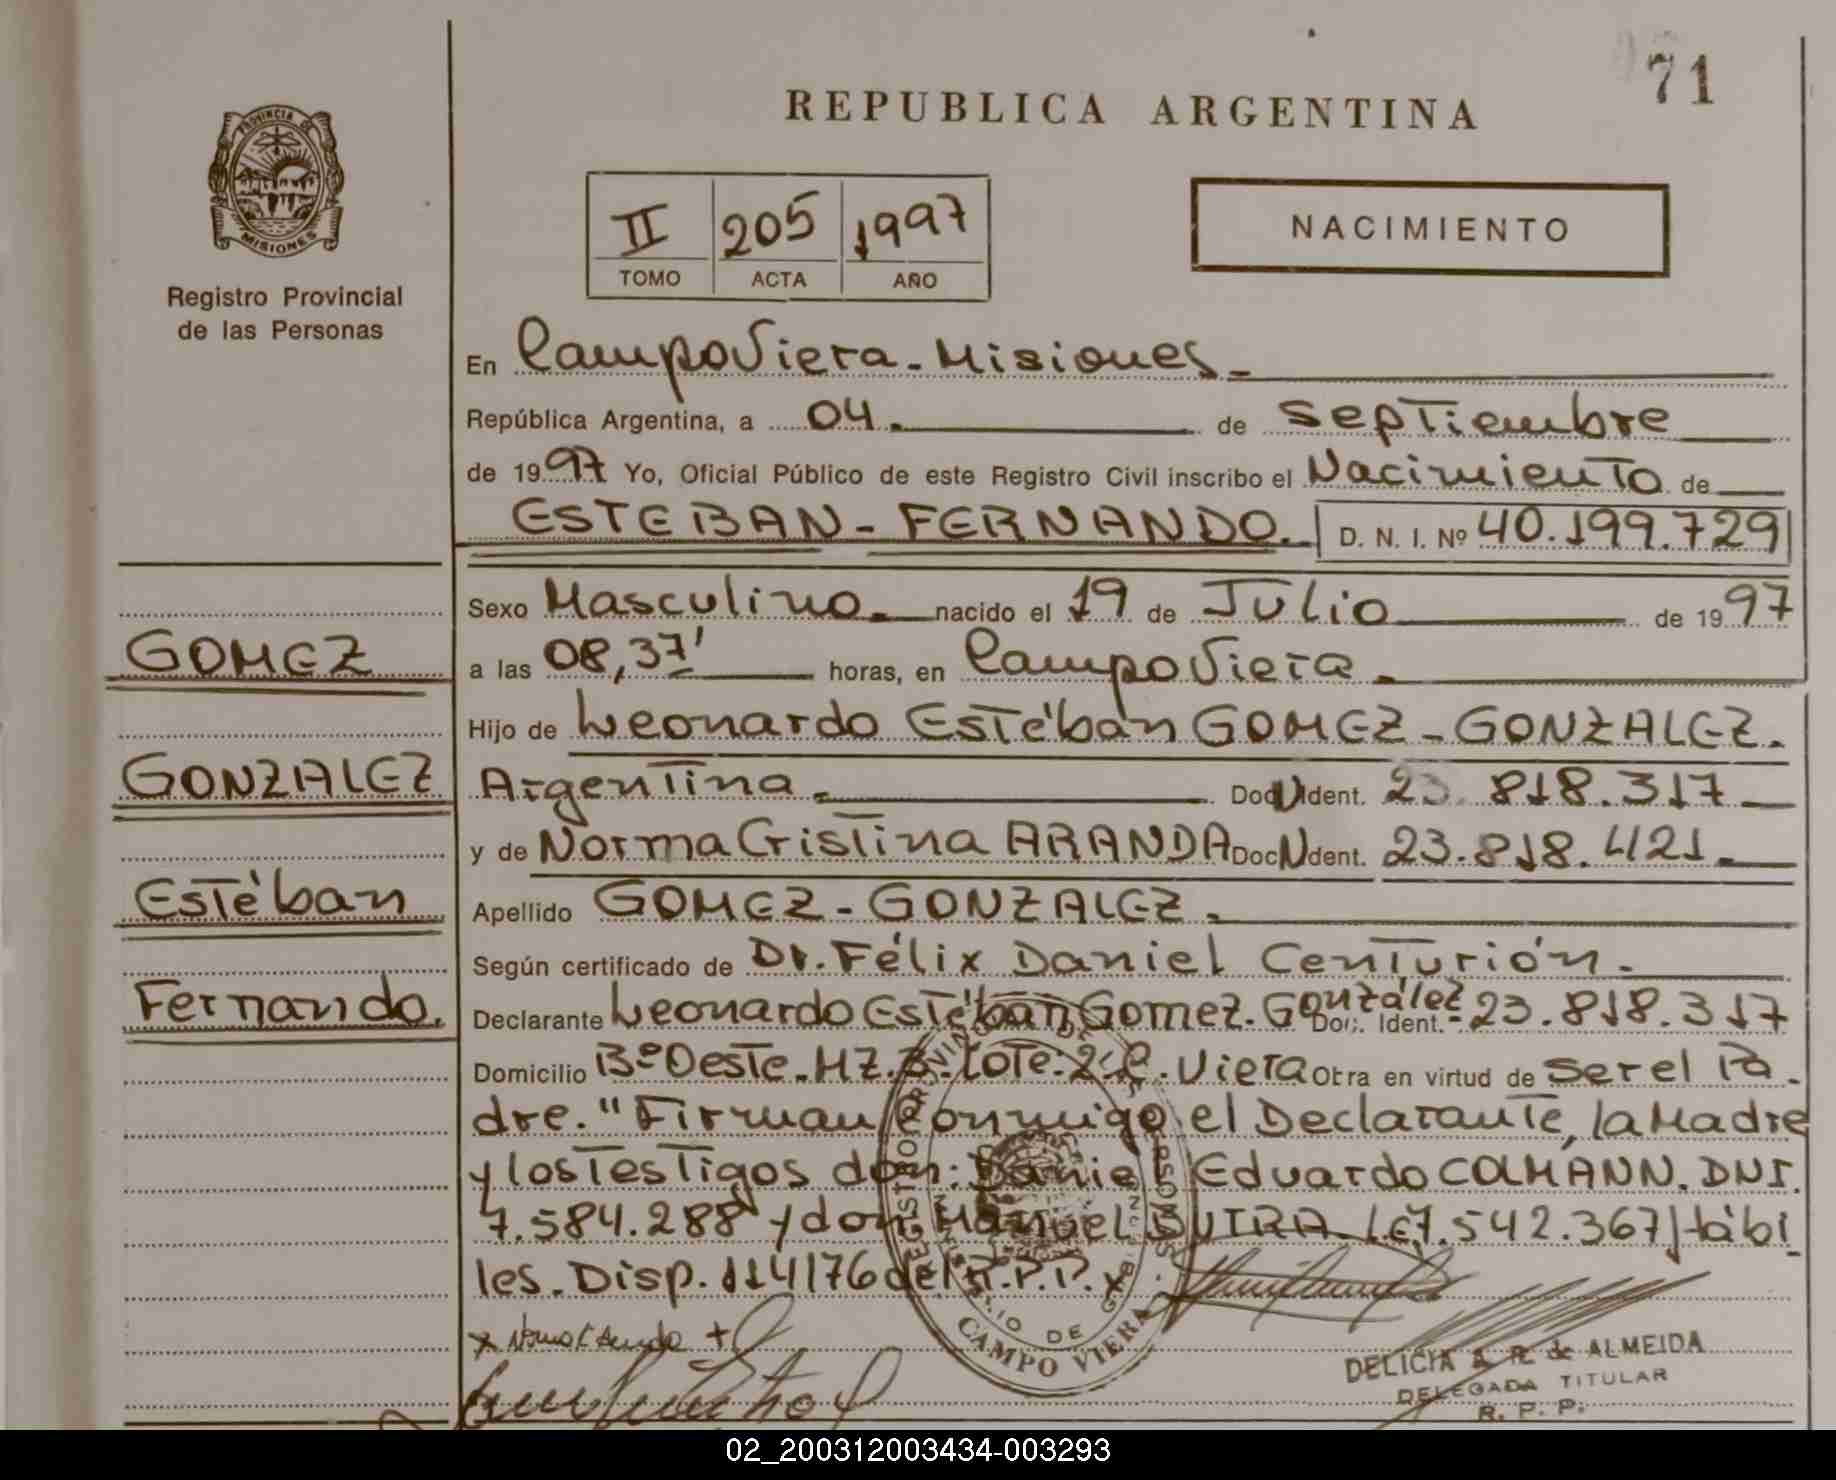 71
REPUBLICA ARGENTINA
PROVINCIA DE
MISIONES
Registro Provincial
de las Personas
II 205 1997
TOMO ACTA AÑO
NACIMIENTO
En Campo Viera - Misiones.
República Argentina, a 04. de Septiembre
de 1997 Yo, Oficial Público de este Registro Civil inscribo el Nacimiento de
ESTEBAN - FERNANDO. D. N. I. Nº 40.199.729
Sexo Masculino. nacido el 19 de Julio de 1997
GOMEZ
a las 08,37' horas, en Campo Viera.
Hijo de Leonardo Estéban GOMEZ - GONZALEZ.
GONZALEZ
Argentina. Doc. Ident. 23.818.317
y de Norma Cristina ARANDA Doc. Ident. 23.818.421.
Estéban
Apellido GOMEZ - GONZALEZ.
Según certificado de Dr. Félix Daniel Centurión.
Fernando.
Declarante Leonardo Estéban Gomez. González Doc. Ident. 23.818.317
Domicilio Bº Oeste. MZ. B. Lote: 2. C. Viera Obra en virtud de ser el Pa-
dre. "Firman Conmigo el Declarante, la Madre
y los Testigos don: Daniel Eduardo COLMANN. DNI.
7.584.288 y don Manuel L.E. 7.542.367 Hábi-
les. Disp. 114176 del R.P.P. x
REGISTRO PROVINCIAL DE LAS PERSONAS
CAMPO VIERA
DELICIA A. R. de ALMEIDA
DELEGADA TITULAR
R. P. P.
02_200312003434-003293